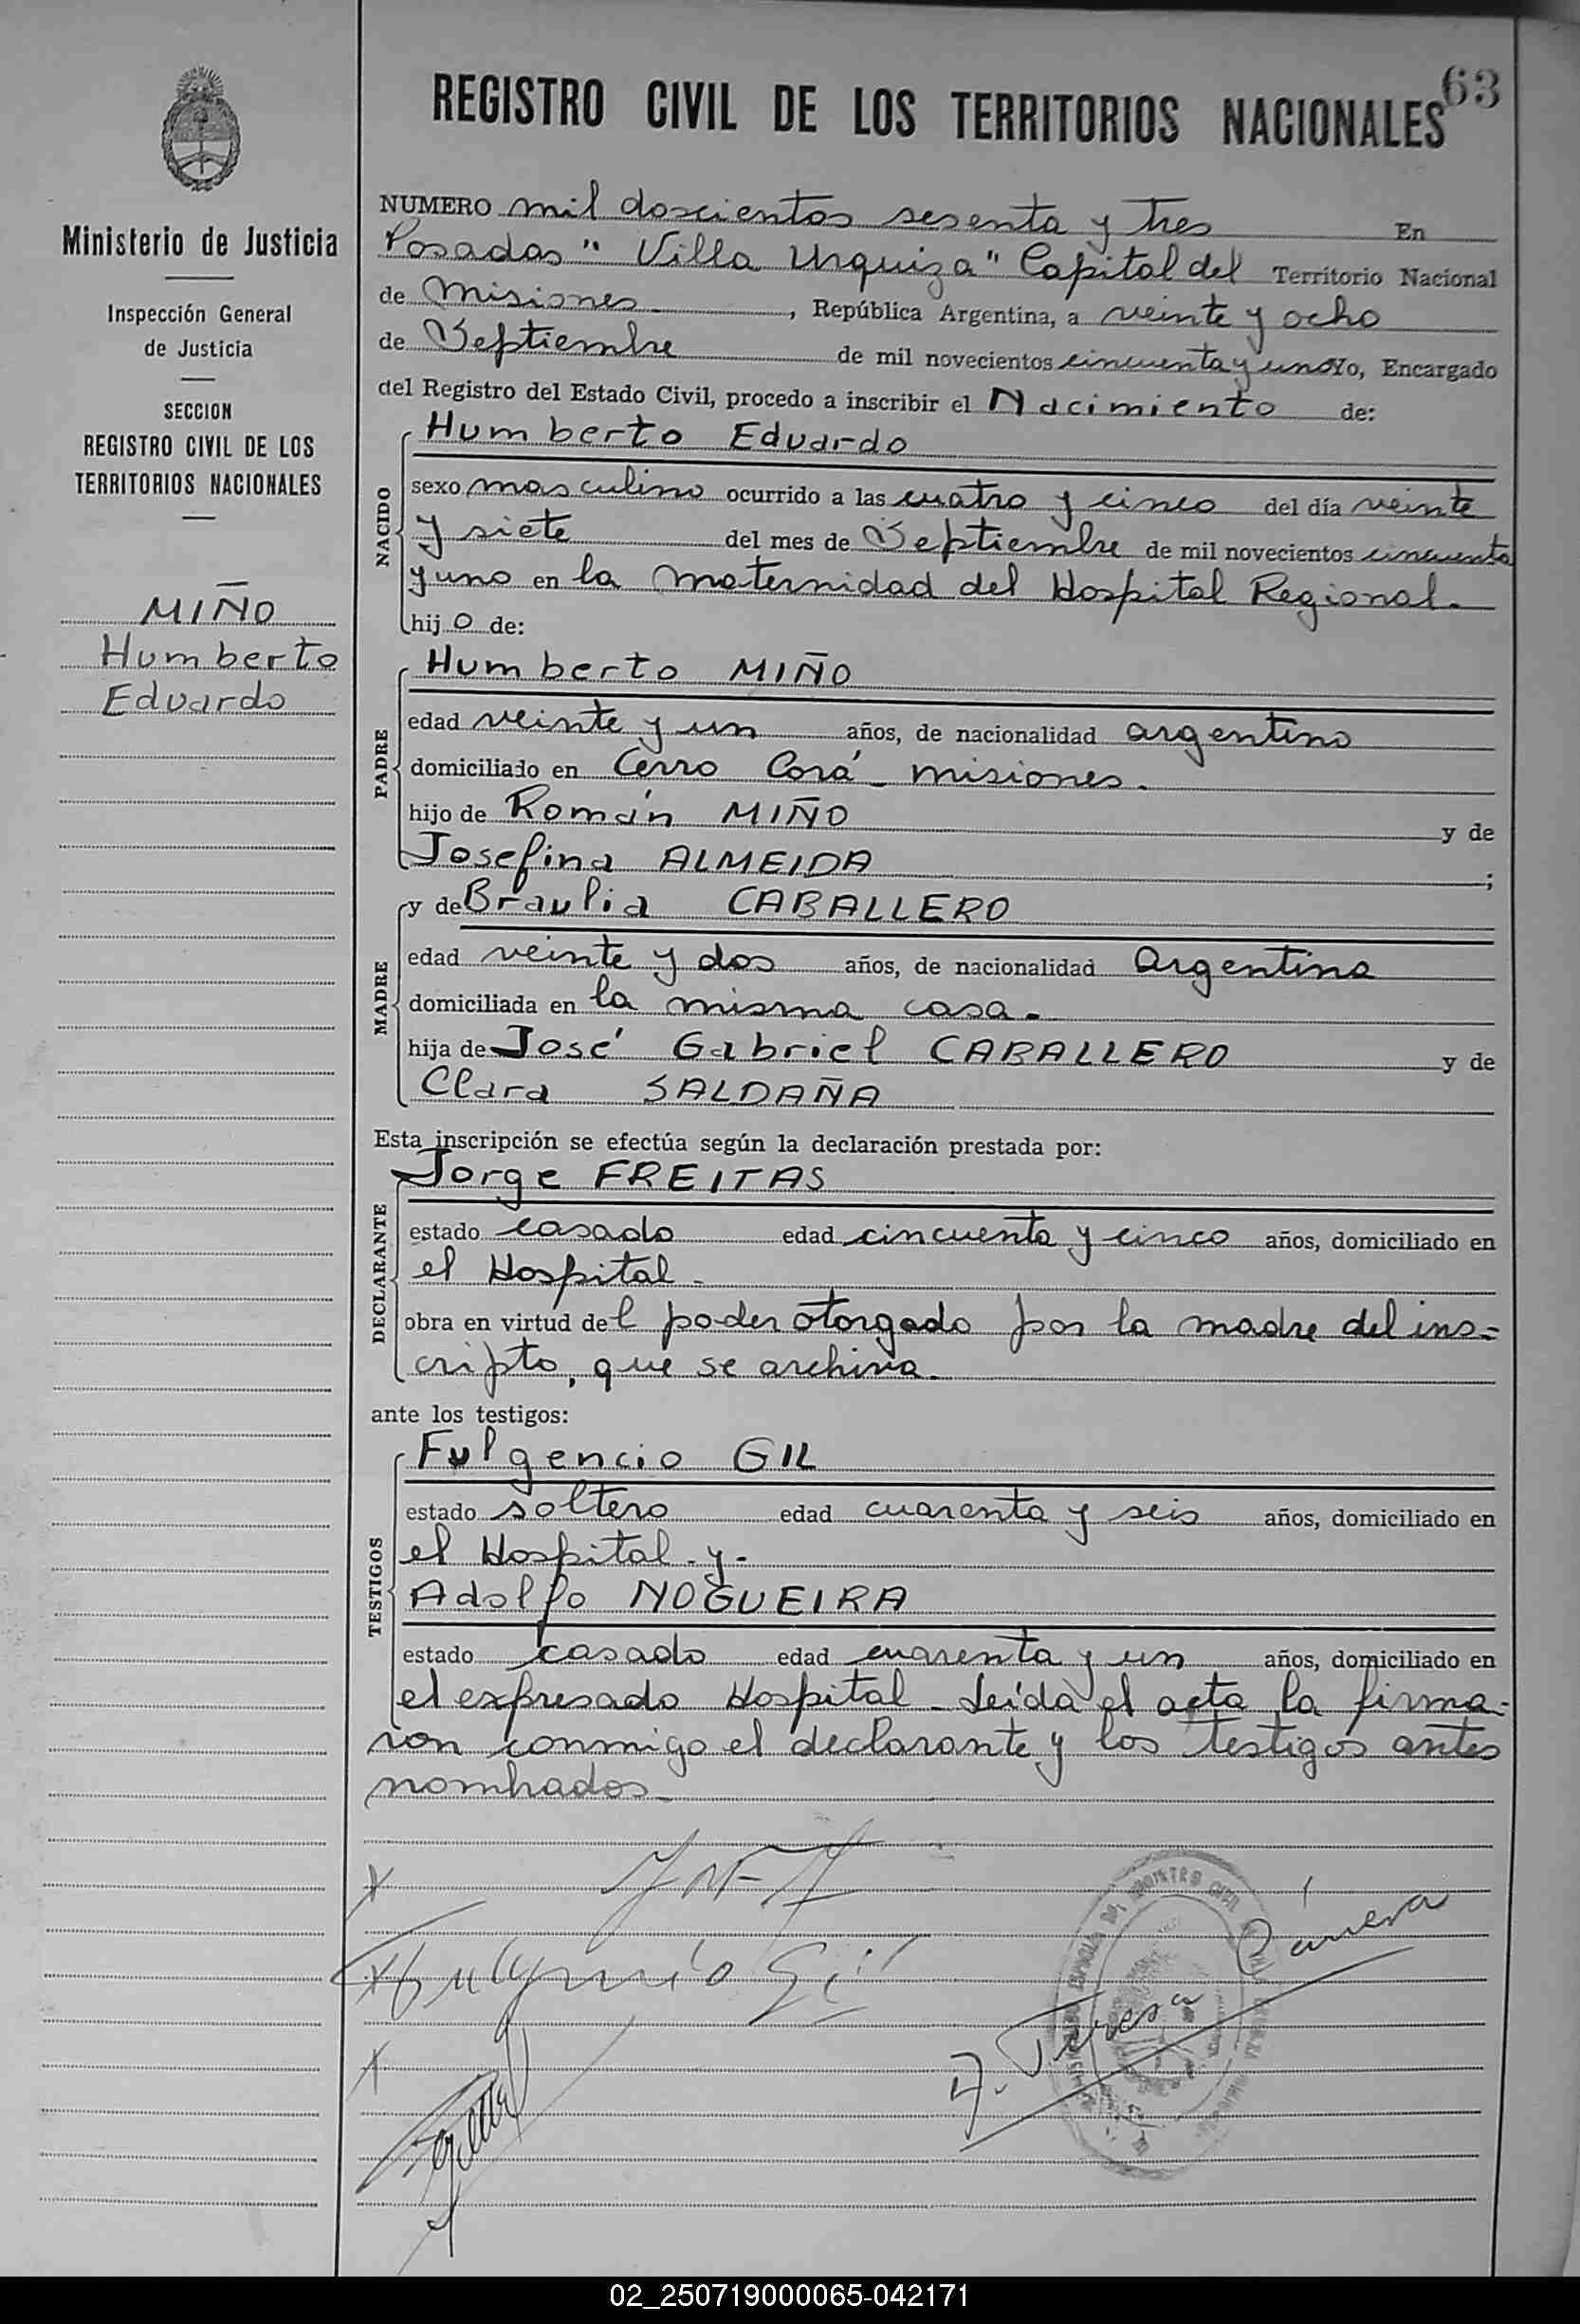 63
REGISTRO CIVIL DE LOS TERRITORIOS NACIONALES
Ministerio de Justicia
Inspección General
de Justicia
SECCION
REGISTRO CIVIL DE LOS
TERRITORIOS NACIONALES
MIÑO
Humberto
Eduardo
NUMERO mil doscientos sesenta y tres En
Posadas "Villa Urquiza" Capital del Territorio Nacional
de Misiones, República Argentina, a veinte y ocho
de Septiembre de mil novecientos cincuenta y uno Yo, Encargado
del Registro del Estado Civil, procedo a inscribir el Nacimiento de:
NACIDO
Humberto Eduardo
sexo masculino ocurrido a las cuatro y cinco del día veinte
y siete del mes de Septiembre de mil novecientos cincuenta
y uno en la maternidad del Hospital Regional.
hijo de:
PADRE
Humberto MIÑO
edad veinte y un años, de nacionalidad argentino
domiciliado en Cerro Corá - misiones.
hijo de Román MIÑO y de
Josefina ALMEIDA ;
MADRE
y de Braulia CABALLERO
edad veinte y dos años, de nacionalidad argentina
domiciliada en la misma casa.
hija de José Gabriel CABALLERO y de
Clara SALDAÑA
Esta inscripción se efectúa según la declaración prestada por:
DECLARANTE
Jorge FREITAS
estado casado edad cincuenta y cinco años, domiciliado en
el Hospital.
obra en virtud del poder otorgado por la madre del ins=
cripto, que se archiva.
ante los testigos:
TESTIGOS
Fulgencio GIL
estado soltero edad cuarenta y seis años, domiciliado en
el Hospital - y -
Adolfo NOGUEIRA
estado casado edad cuarenta y un años, domiciliado en
el expresado Hospital - Leída el acta la firma=
ron conmigo el declarante y los testigos antes
nombrados.
x
x Fulgencio Gil
x
A. Teresa
02_250719000065-042171